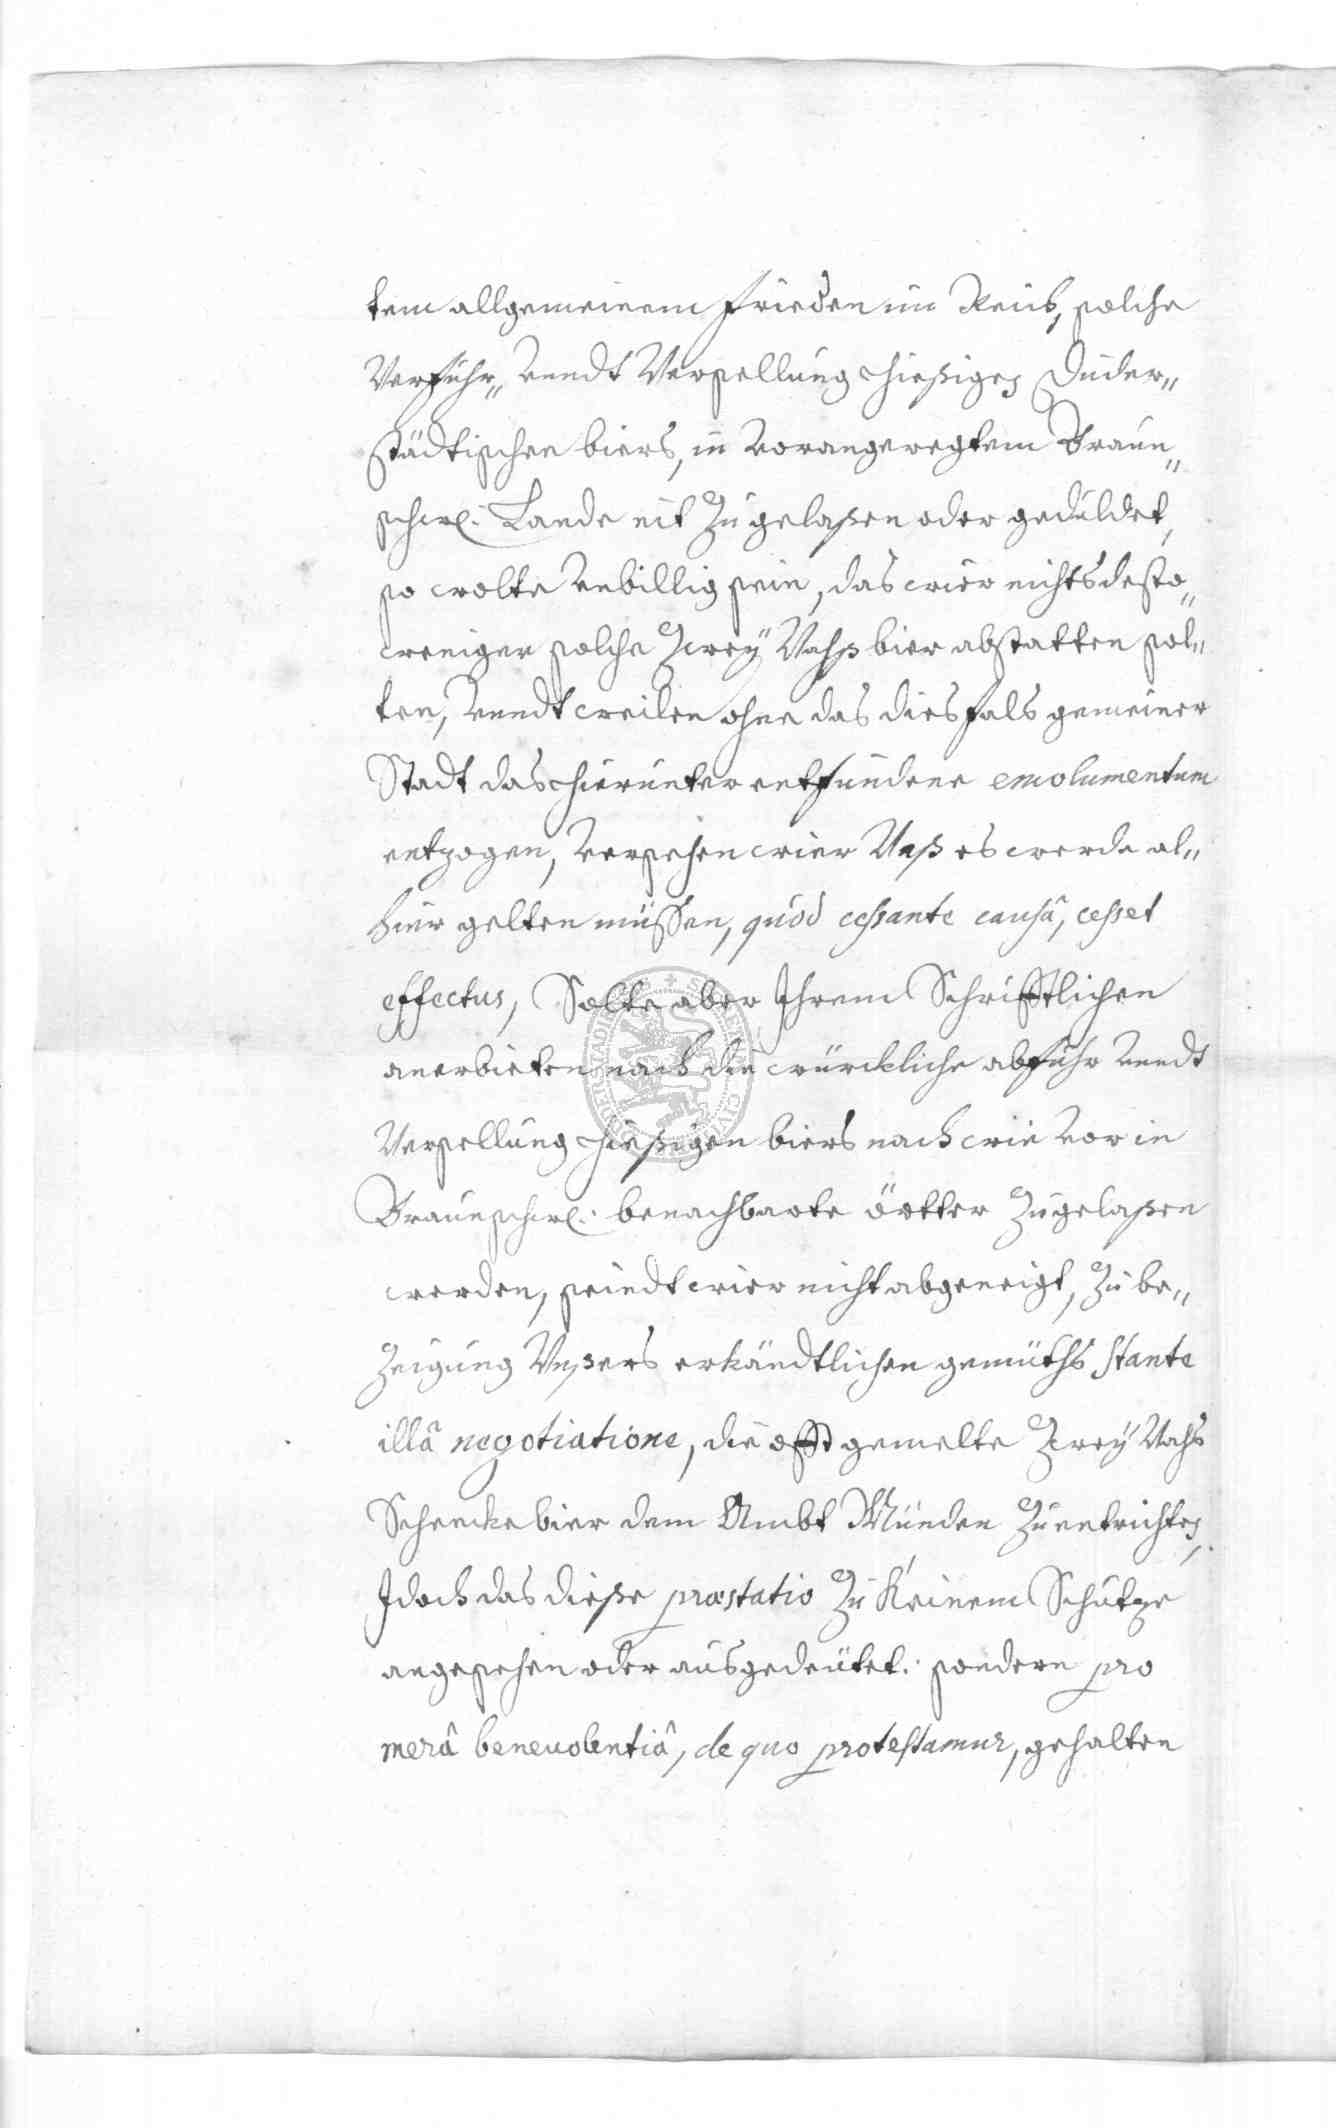 tem allgemeinem frieden im Reich, solche
Verfuhr„ vnndt Versellung hießiges Duder„
städtischen biers, in vorangeregtem Braun„
schw. Lande nit Zugelaßen oder geduldet,
so wolte vnbillig sein, das wier nichts desto„
weniger solche Zwey Vahß bier abstatten sol„
ten, vnndt weilen ohne das diesfals gemeiner
Stadt das hierunter entfundene emolumentum
entzogen, versehen wier Vnß es werde al„
hier gelten müssen, quod cessante causâ, cesset
effectus, Solte aber Ihrem Schrifftlichen
anerbieten nach die würckliche abfuhr vnndt
Versellung hießigen biers nach wie vor in
Braunschw. benachbarte örtter Zugelaßen
werden, seindt wier nicht abgeneigt, Zu be„
Zeigung Vnsers erkändtlichen gemüths stante
illâ negotiatione, die offt gemelte Zwey Vahs
Schencke bier dem Ambt Münden Zu entrichten,
Idoch das dieße præstatio Zu Keinem Schutze
angesehen oder ausgedeutet. sondern pro
merâ beneuolentiâ, de quo protestamur, gehalten